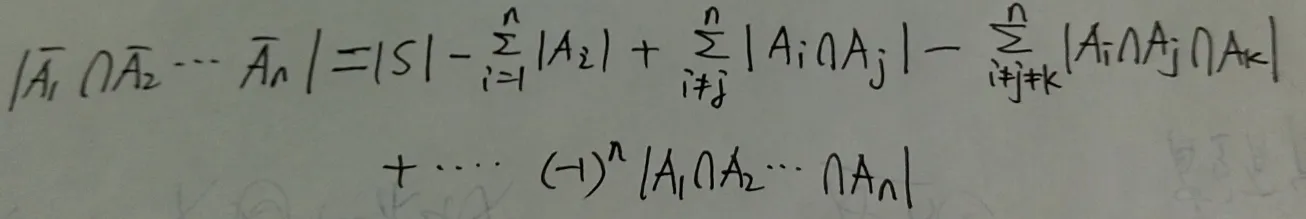 |Ā₁ ∩ Ā₂ ⋯ Āₙ| = |S| - ∑_{i=1}^{n} |A₂| + ∑_{i≠j}^{n} |Aᵢ ∩ Aⱼ| - ∑_{i≠j≠k}^{n} |Aᵢ ∩ Aⱼ ∩ Aₖ|
+ ⋯⋯ (-1)ⁿ |A₁ ∩ A₂ ⋯ ∩ Aₙ|